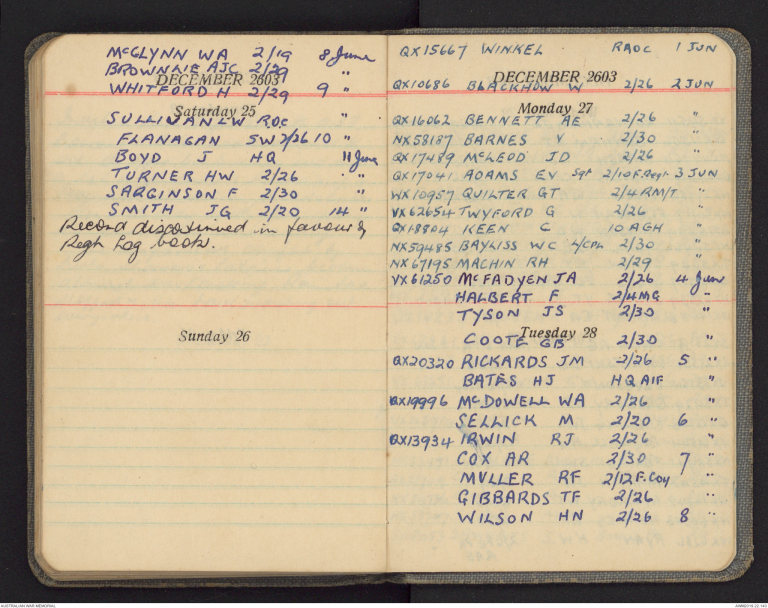 McGLYNN WA 2/19 8 June
BROWNLIE AJC 2/29 "
DECEMBER 2603
WHITFORD H 2/29 9 "
Saturday 25
SULLIVAN LW ROC "
FLANAGAN SW 2/26 10 "
BOYD J HQ 11 June
TURNER HW 2/26 "
SARGINSON F 2/30 "
SMITH JG 2/20 14 "
Record discontinued in favour of
Regtl Log book.
Sunday 26
QX15667 WINKEL RAOC 1 JUN
DECEMBER 2603
QX10686 BLACKHOW W 2/26 2 JUN
Monday 27
QX16062 BENNETT AE 2/26 "
NX58187 BARNES V 2/30 "
QX17489 McLEOD JD 2/26 "
QX17041 ADAMS EV Sgt 2/10 F.Regt 3 JUN
WX10957 QUILTER GT 2/4 RM/T "
VX62654 TWYFORD G 2/26 "
QX18804 KEEN C 10 AGH "
NX59485 BAYLISS WC L/CPL 2/30 "
NX67195 MACHIN RH 2/29 "
VX61250 McFADYEN JA 2/26 4 June
HALBERT F 2/4MG "
TYSON JS 2/30 "
Tuesday 28
COOTE GB 2/30 "
QX20320 RICKARDS JM 2/26 5 "
BATES HJ HQ AIF "
QX19996 McDOWELL WA 2/26 "
SELLICK M 2/20 6 "
QX13934 IRWIN RJ 2/26 "
COX AR 2/30 7 "
MULLER RF 2/12 F.Coy "
GIBBARDS TF 2/26 "
WILSON HN 2/26 8 "
AUSTRALIAN WAR MEMORIAL